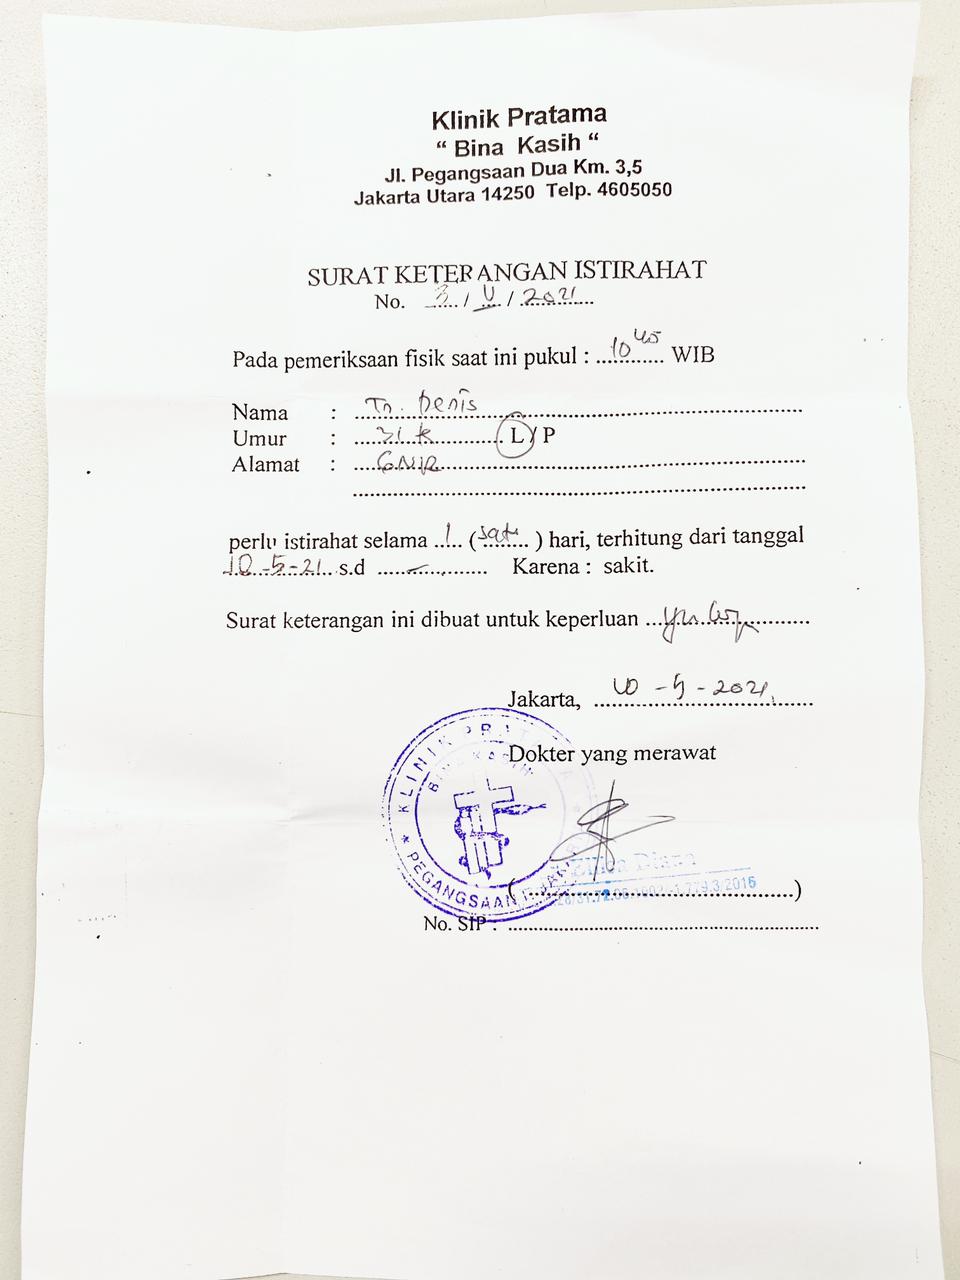 Klinik Pratama
“ Bina Kasih “
Jl. Pegangsaan Dua Km. 3,5
Jakarta Utara 14250 Telp. 4605050
SURAT KETERANGAN ISTIRAHAT
No. 3 / V / 2021
Pada pemeriksaan fisik saat ini pukul : 10 45 WIB
Nama : Tn. Denis
Umur : 31 L / P
Alamat :
perlu istirahat selama 1 (satu) hari, terhitung dari tanggal
10-5-21 s.d - Karena : sakit.
Surat keterangan ini dibuat untuk keperluan
Jakarta, 10 - 5 - 2021
Dokter yang merawat
KLINIK PRATAMA
BINA KASIH
PEGANGSAAN
Diana
( )
No. SIP :